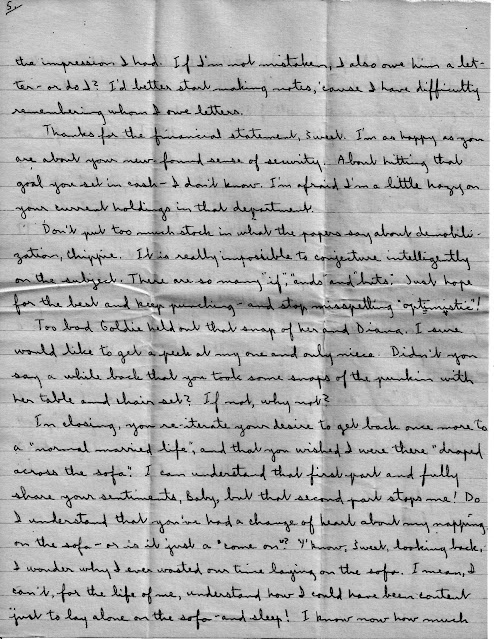 5.
the impression I had. If I'm not mistaken, I also owe him a let-
ter - or do I? I'd better start making notes, 'cause I have difficulty
remembering whom I owe letters.
Thanks for the financial statement, Sweet. I'm as happy as you
are about your new-found sense of security. About hitting that
goal you set in cash - I don't know. I'm afraid I'm a little hazy on
your current holdings in that department.
Don't put too much stock in what the papers say about demobili-
zation, Chippie. It is really impossible to conjecture intelligently
on the subject. There are so many "if", "ands and "buts." Just hope
for the best and keep punching - and stop misspelling "optimistic"!
Too bad Goldie held out that snap of her and Diana. I sure
would like to get a peek at my one and only niece. Didn't you
say a while back that you took some snaps of the punkin with
her table and chair set? If not, why not?
In closing, you re-iterate your desire to get back once more to
a "normal married life", and that you wished I were there "draped
across the sofa". I can understand that first part and fully
share your sentiments, Baby, but that second part stops me! Do
I understand that you've had a change of heart about my napping
on the sofa - or is it just a "come on"? Y'know, Sweet, looking back,
I wonder why I ever wasted our time laying on the sofa. I mean, I
can't, for the life of me, understand how I could have been content
just to lay alone on the sofa - and sleep! I know now how much